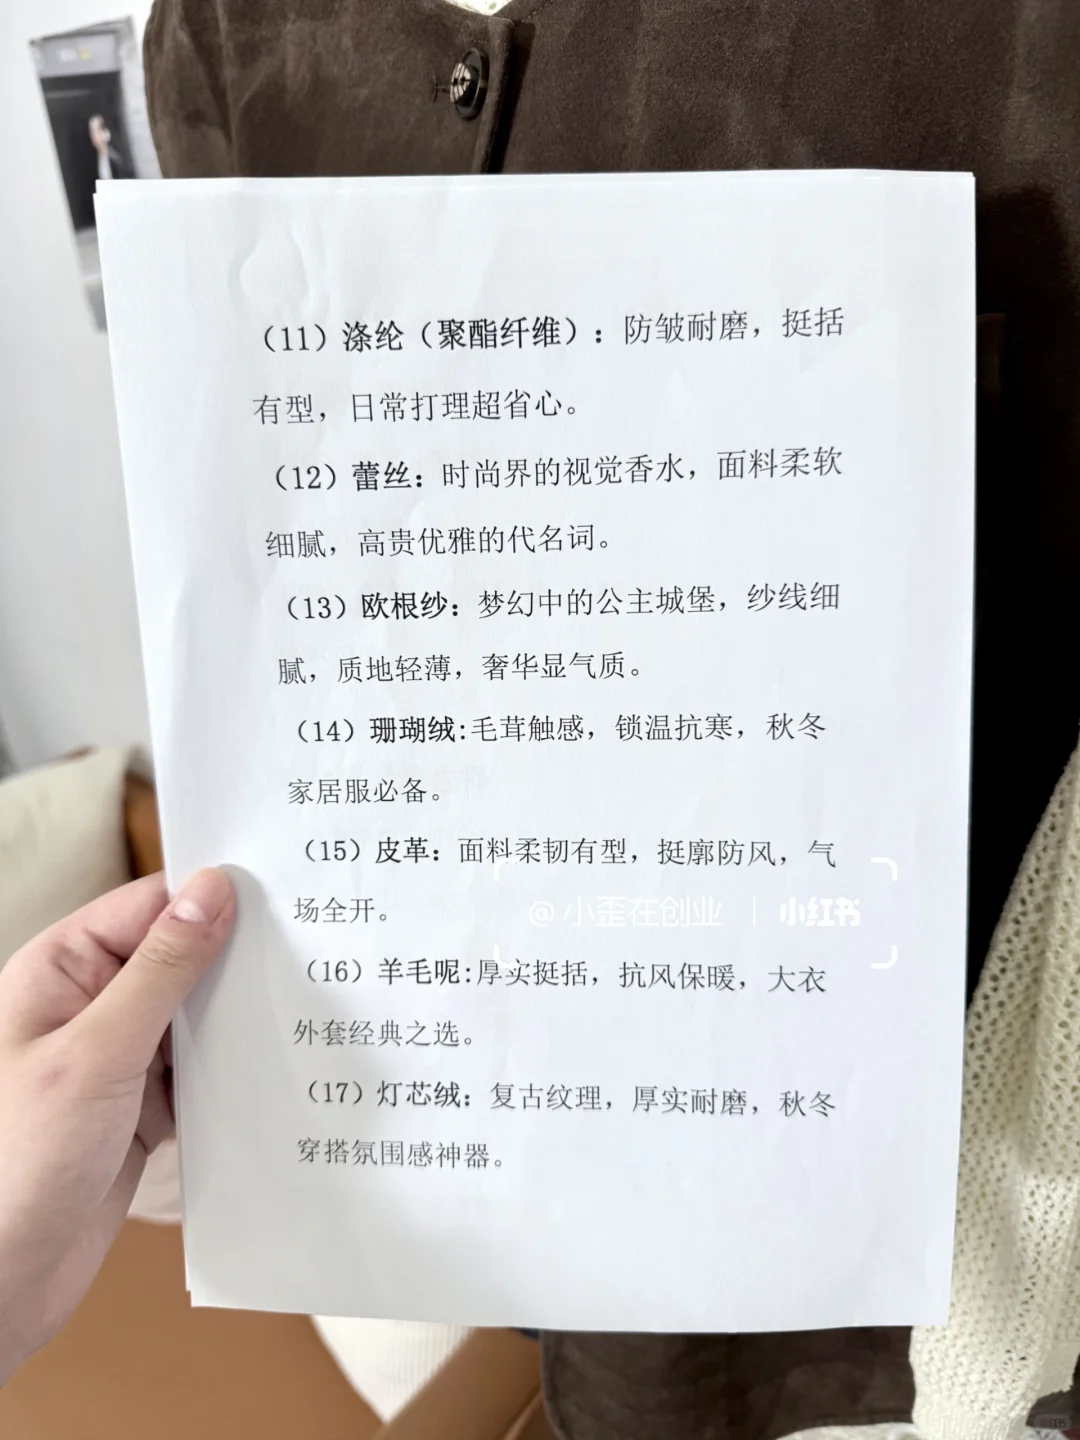 （11）涤纶（聚酯纤维）：防皱耐磨，挺括
有型，日常打理超省心。
（12）蕾丝：时尚界的视觉香水，面料柔软
细腻，高贵优雅的代名词。
（13）欧根纱：梦幻中的公主城堡，纱线细
腻，质地轻薄，奢华显气质。
（14）珊瑚绒:毛茸触感，锁温抗寒，秋冬
家居服必备。
（15）皮革：面料柔韧有型，挺廓防风，气
场全开。
@小歪在创业 | 小红书
（16）羊毛呢:厚实挺括，抗风保暖，大衣
外套经典之选。
（17）灯芯绒：复古纹理，厚实耐磨，秋冬
穿搭氛围感神器。
小红书